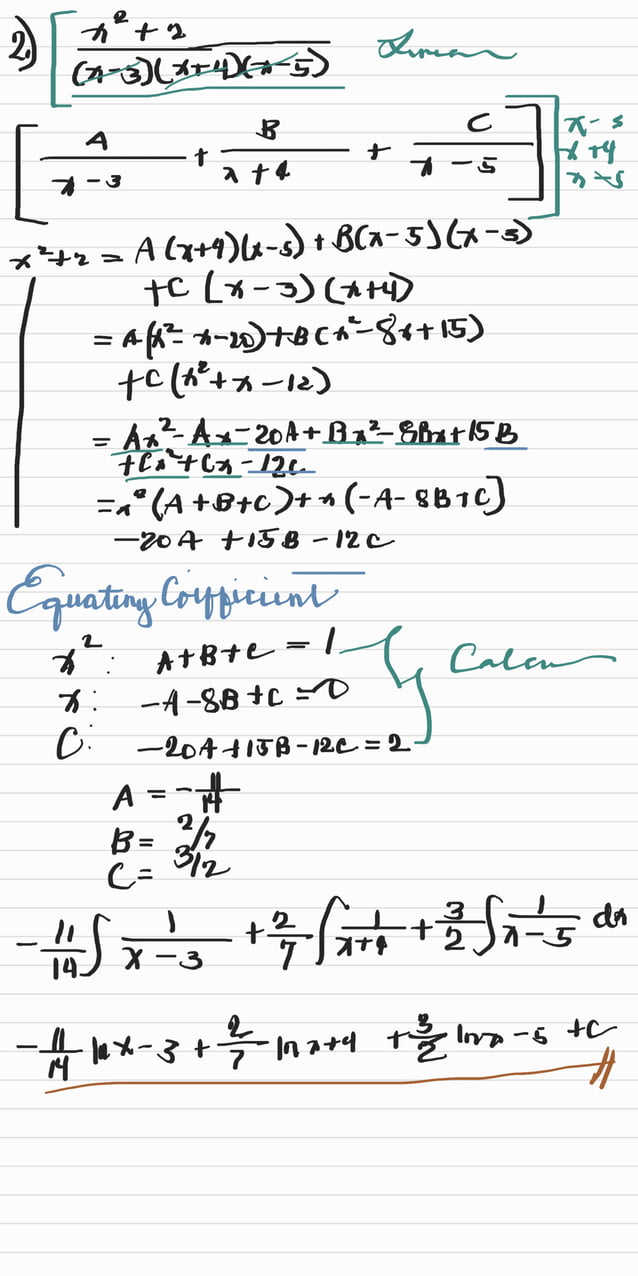 2.) [ x² + 2 / (x-3)(x+4)(x-5) Linear
[ A / x-3 + B / x+4 + C / x-5 ] x-5
x+4
x-5
x²+2 = A(x+4)(x-5) + B(x-5)(x-3)
+C (x-3)(x+4)
= A(x²-x-20)+B(x²-8x+15)
+C(x²+x-12)
= Ax²-Ax-20A+Bx²-8Bx+15B
+Cx²+Cx-12C
=x²(A+B+C)+x(-A-8B+C)
-20A +15B-12C
Equating Coifficient
x²: A+B+C = 1
x: -A-8B+C=0
C: -20A+15B-12C=2
A = -11/14
B= 2/7
C= 3/2
-11/14 ∫ 1 / x-3 + 2/7 ∫ 1 / x+4 + 3/2 ∫ 1 / x-5 dx
-11/14 ln x-3 + 2/7 ln x+4 + 3/2 ln x-5 +C